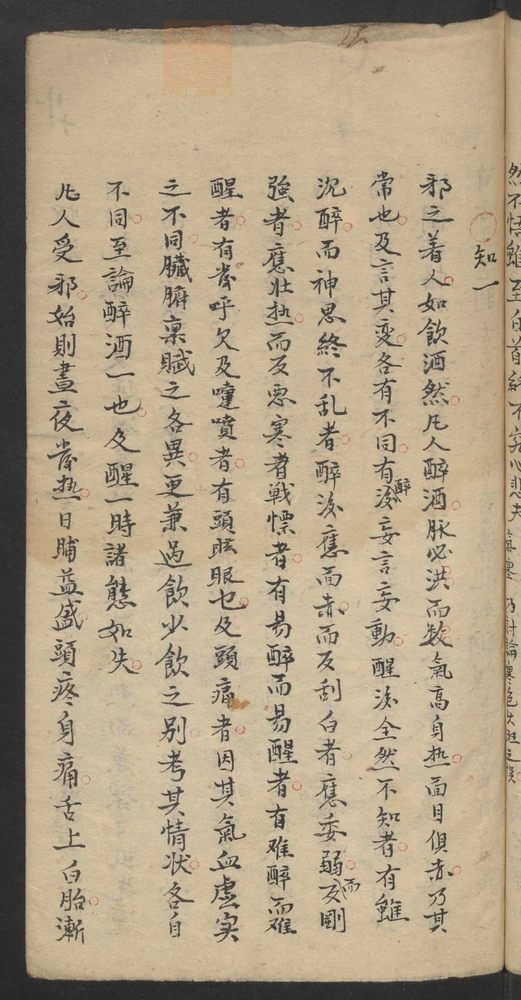 然不悟雖至白首終不究心悲夫
知一
邪之着人如飲酒然凡人醉酒脉必洪而数氣高身热面目俱赤乃其
常也及言其変各有不同有醉後妄言妄動醒後全然不知者有雖
沉醉而神思終不乱者醉後應面赤而反刮白者應委弱而反剛
強者應壮热而反悪寒者戦慄者有易醉而易醒者有难醉而难
醒者有發呼欠及嚏噴者有頭眩眼也及頭痛者因其氣血虚实
之不同臟腑禀賦之各異更兼過飲少飲之别考其情状各自
不同至論醉酒一也及醒一時諸態如失
凡人受邪始則晝夜發热日晡益盛頭疼身痛舌上白胎漸